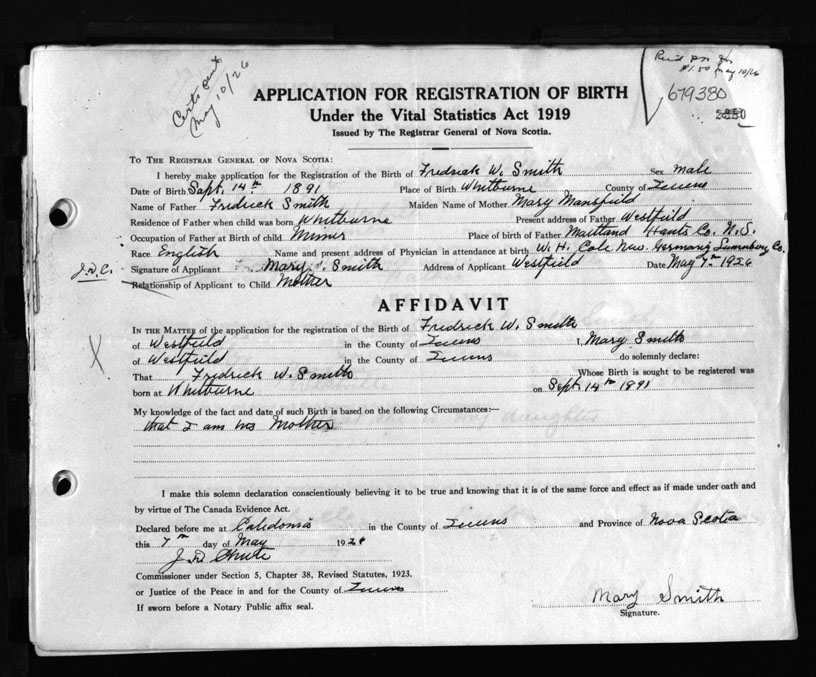 Certs sent
May 10/26
May 10/26
679380
APPLICATION FOR REGISTRATION OF BIRTH
Under the Vital Statistics Act 1919
Issued by The Registrar General of Nova Scotia.
TO THE REGISTRAR GENERAL OF NOVA SCOTIA:
I hereby make application for the Registration of the Birth of Fredrick W. Smith Sex male
Date of Birth Sept. 14th 1891 Place of Birth Whitburne County of Queens
Name of Father Fredrick Smith Maiden Name of Mother Mary Mansfield
Residence of Father when child was born Whitburne Present address of Father Westfield
Occupation of Father at Birth of child Miner Place of birth of Father Maitland Hants Co. N.S.
Race English Name and present address of Physician in attendance at birth W. H. Cole New Germany Lunenburg Co.
J.D.C. Signature of Applicant Mary Smith Address of Applicant Westfield Date May 7th 1926
Relationship of Applicant to Child Mother
AFFIDAVIT
IN THE MATTER of the application for the registration of the Birth of Fredrick W. Smith
of Westfield in the County of Queens I, Mary Smith
of Westfield in the County of Queens do solemnly declare:
That Fredrick W. Smith Whose Birth is sought to be registered was
born at Whitburne on Sept. 14th 1891
My knowledge of the fact and date of such Birth is based on the following Circumstances:—
that I am his Mother
I make this solemn declaration conscientiously believing it to be true and knowing that it is of the same force and effect as if made under oath and
by virtue of The Canada Evidence Act.
Declared before me at Caledonia in the County of Queens and Province of Nova Scotia
this 7th day of May 1926
Commissioner under Section 5, Chapter 38, Revised Statutes, 1923.
or Justice of the Peace in and for the County of Queens
If sworn before a Notary Public affix seal.
Mary Smith
Signature.